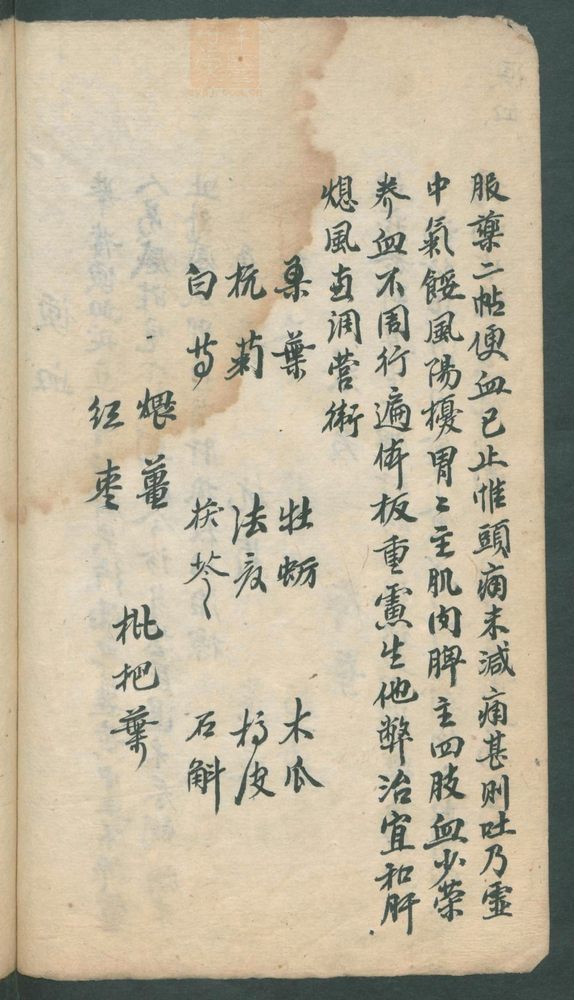 服藥二帖便血已止惟頭痛未減痛甚則吐乃靈
中氣餒風陽擾胃〻主肌肉脾主四肢血少榮
养血不周行遍体板重慮生他弊治宜和肝
熄風兼調營術
桑葉 牡蛎 木瓜
杭菊 法夏 橘皮
白芍 茯苓 石斛
煨薑
红枣 枇杷葉